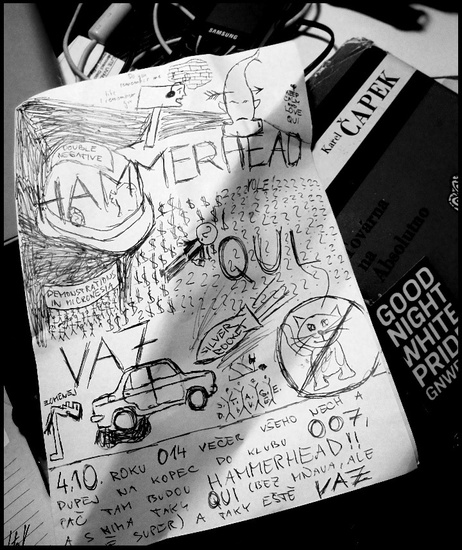 SAMSUNG
DOUBLE
NEGATIVE
HAMMERHEAD
Karel ČAPEK
Továrna
na
Absolutno
QUI
DEMONSTRATION
IN MICRONESIA
VAZ
SILVER
ROCKET
GOOD
NIGHT
WHITE
PRIDE
4.10. ROKU 014 VEČER VŠEHO NECH A
DUPEJ NA KOPEC DO KLUBU 007,
PAČ TAM BUDOU HAMMERHEAD!!
A S NIMA TAKY QUI (BEZ MŇAUA, ALE
SUPER) A TAKY EŠTĚ VAZ